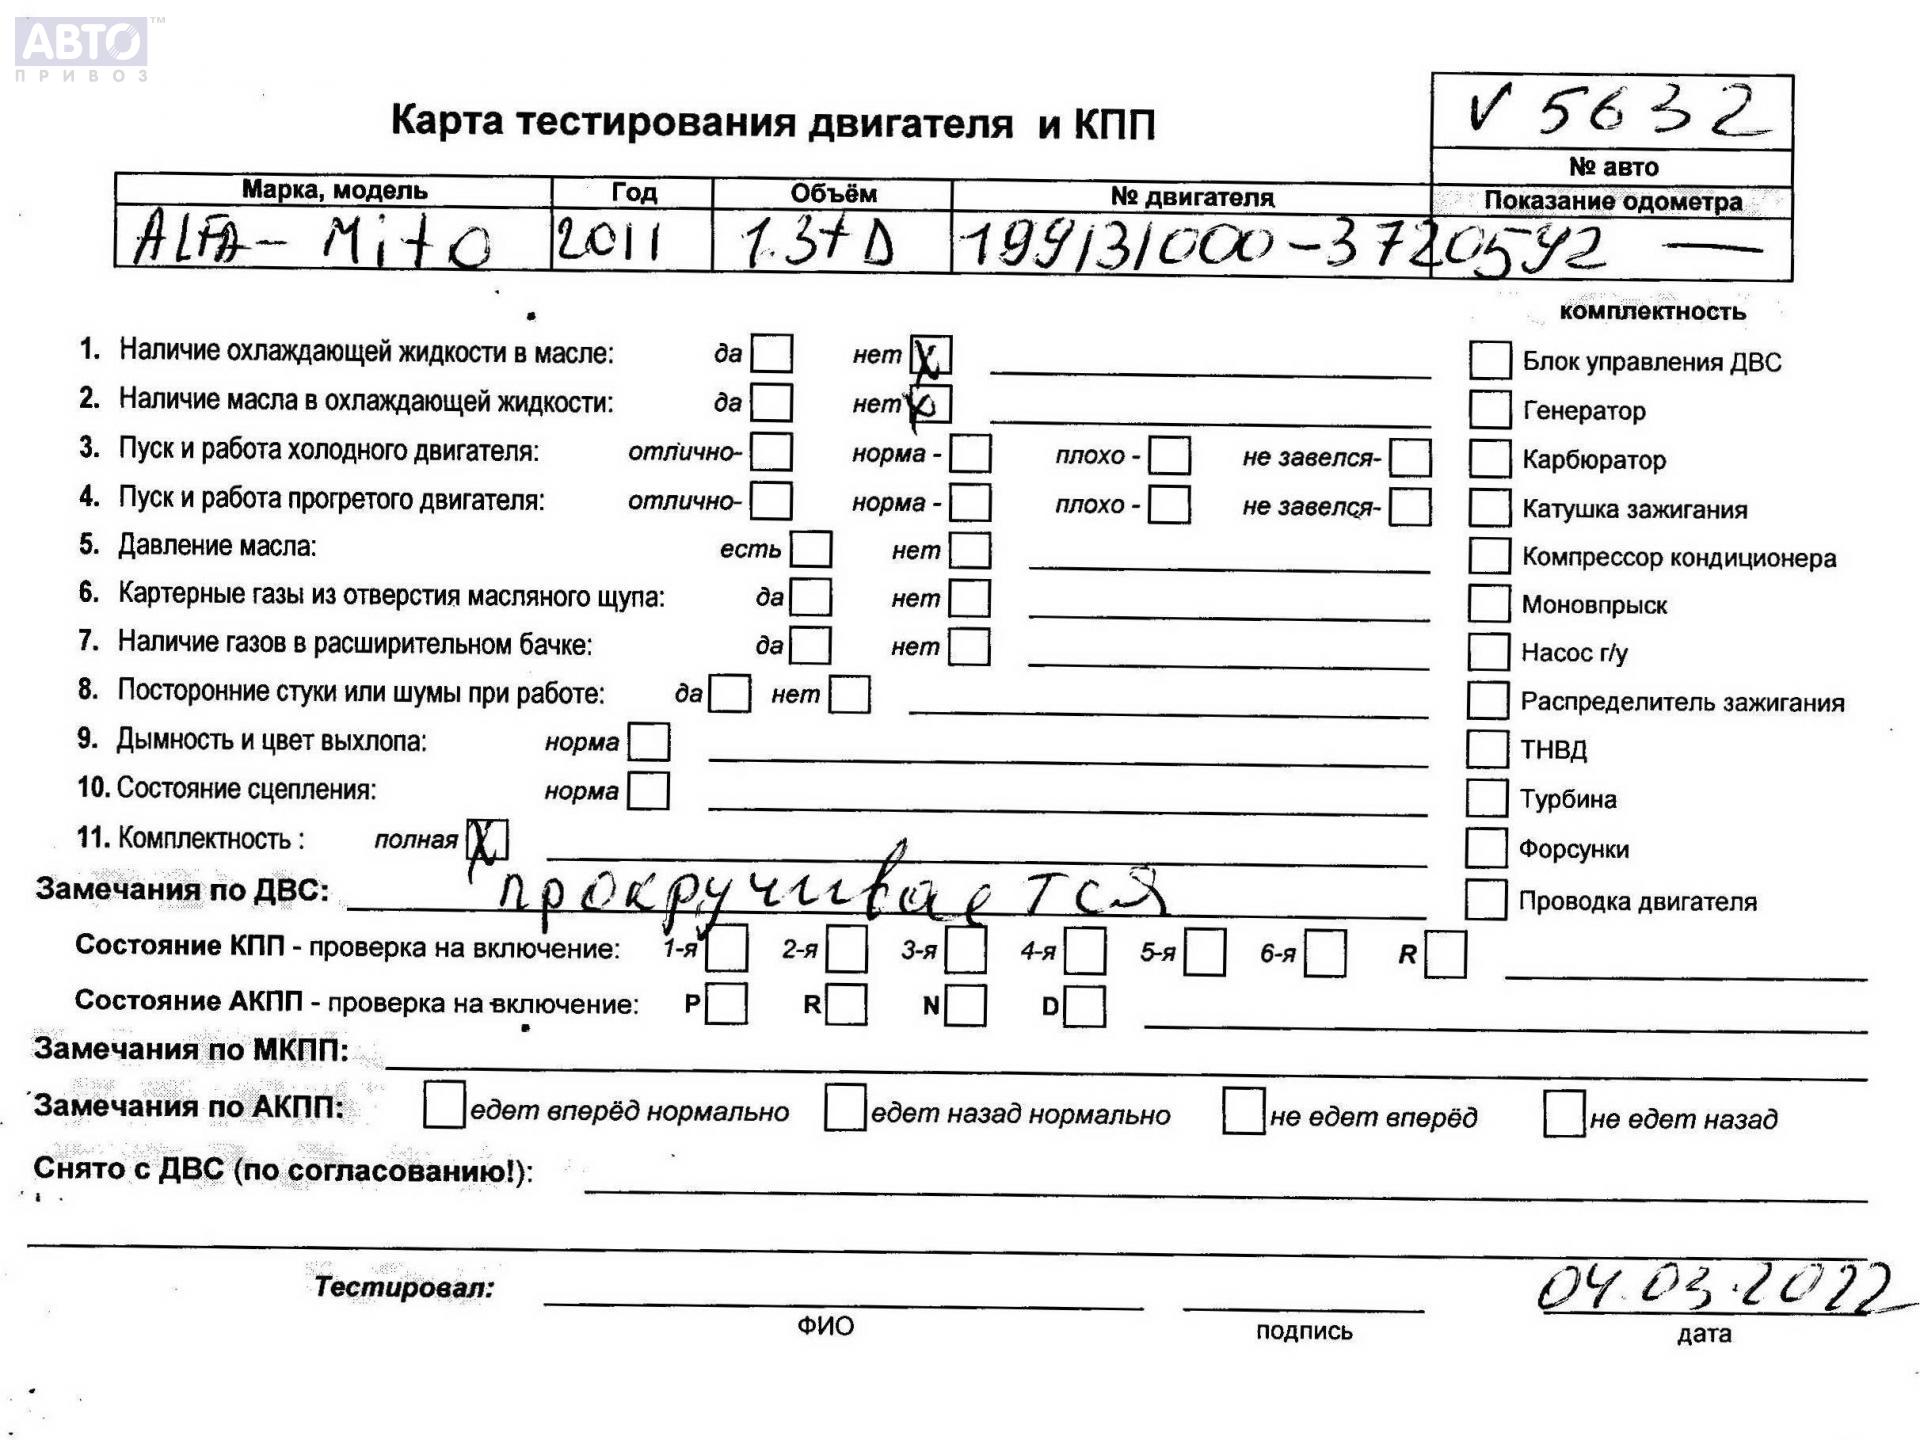 АВТО™
ПРИВОЗ
V 5632
Карта тестирования двигателя и КПП
№ авто
Марка, модель Год Объём № двигателя Показание одометра
ALFA - Mito 2011 1.3tD 199131000-3720592 —
комплектность
1. Наличие охлаждающей жидкости в масле: да нет X Блок управления ДВС
2. Наличие масла в охлаждающей жидкости: да нет X Генератор
3. Пуск и работа холодного двигателя: отлично- норма - плохо - не завелся- Карбюратор
4. Пуск и работа прогретого двигателя: отлично- норма - плохо - не завелся- Катушка зажигания
5. Давление масла: есть нет Компрессор кондиционера
6. Картерные газы из отверстия масляного щупа: да нет Моновпрыск
7. Наличие газов в расширительном бачке: да нет Насос г/у
8. Посторонние стуки или шумы при работе: да нет Распределитель зажигания
9. Дымность и цвет выхлопа: норма ТНВД
10. Состояние сцепления: норма Турбина
11. Комплектность : полная X Форсунки
Замечания по ДВС: прокручивается Проводка двигателя
Состояние КПП - проверка на включение: 1-я 2-я 3-я 4-я 5-я 6-я R
Состояние АКПП - проверка на включение: P R N D
Замечания по МКПП:
Замечания по АКПП: едет вперёд нормально едет назад нормально не едет вперёд не едет назад
Снято с ДВС (по согласованию!):
Тестировал: 04.03.2022
ФИО подпись дата